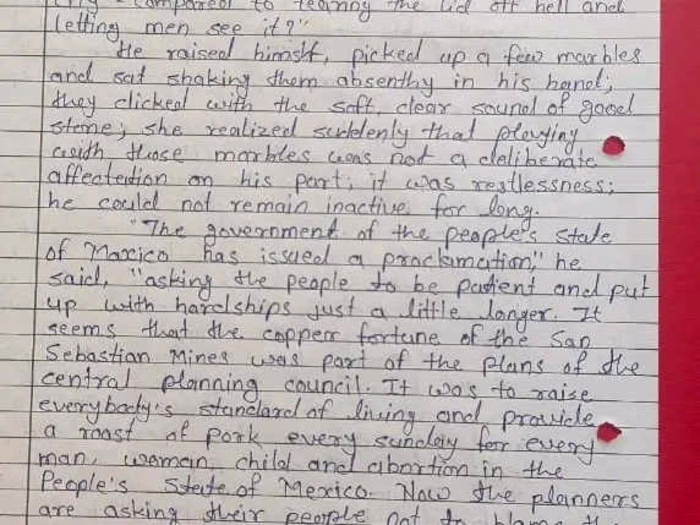 compared to tearing the lid off hell and
letting men see it?"
He raised himslf, picked up a few marbles
and sat shaking them absenthy in his hand;
they clicked with the soft, clear sound of good
stone; she realized suddenly that playing
with those marbles was not a deliberate
affectation on his part; it was restlessness;
he could not remain inactive for long.
"The government of the people's state
of Maxico has issued a proclamation," he
said, "asking the people to be patient and put
up with hardships just a little longer. It
seems that the copper fortune of the San
Sebastian Mines was part of the plans of the
central planning council. It was to raise
everybody's standard of living and provide
a roast of pork every sunday for every
man, woman, child and abortion in the
People's State of Mexico. Now the planners
are asking their people not to blame the